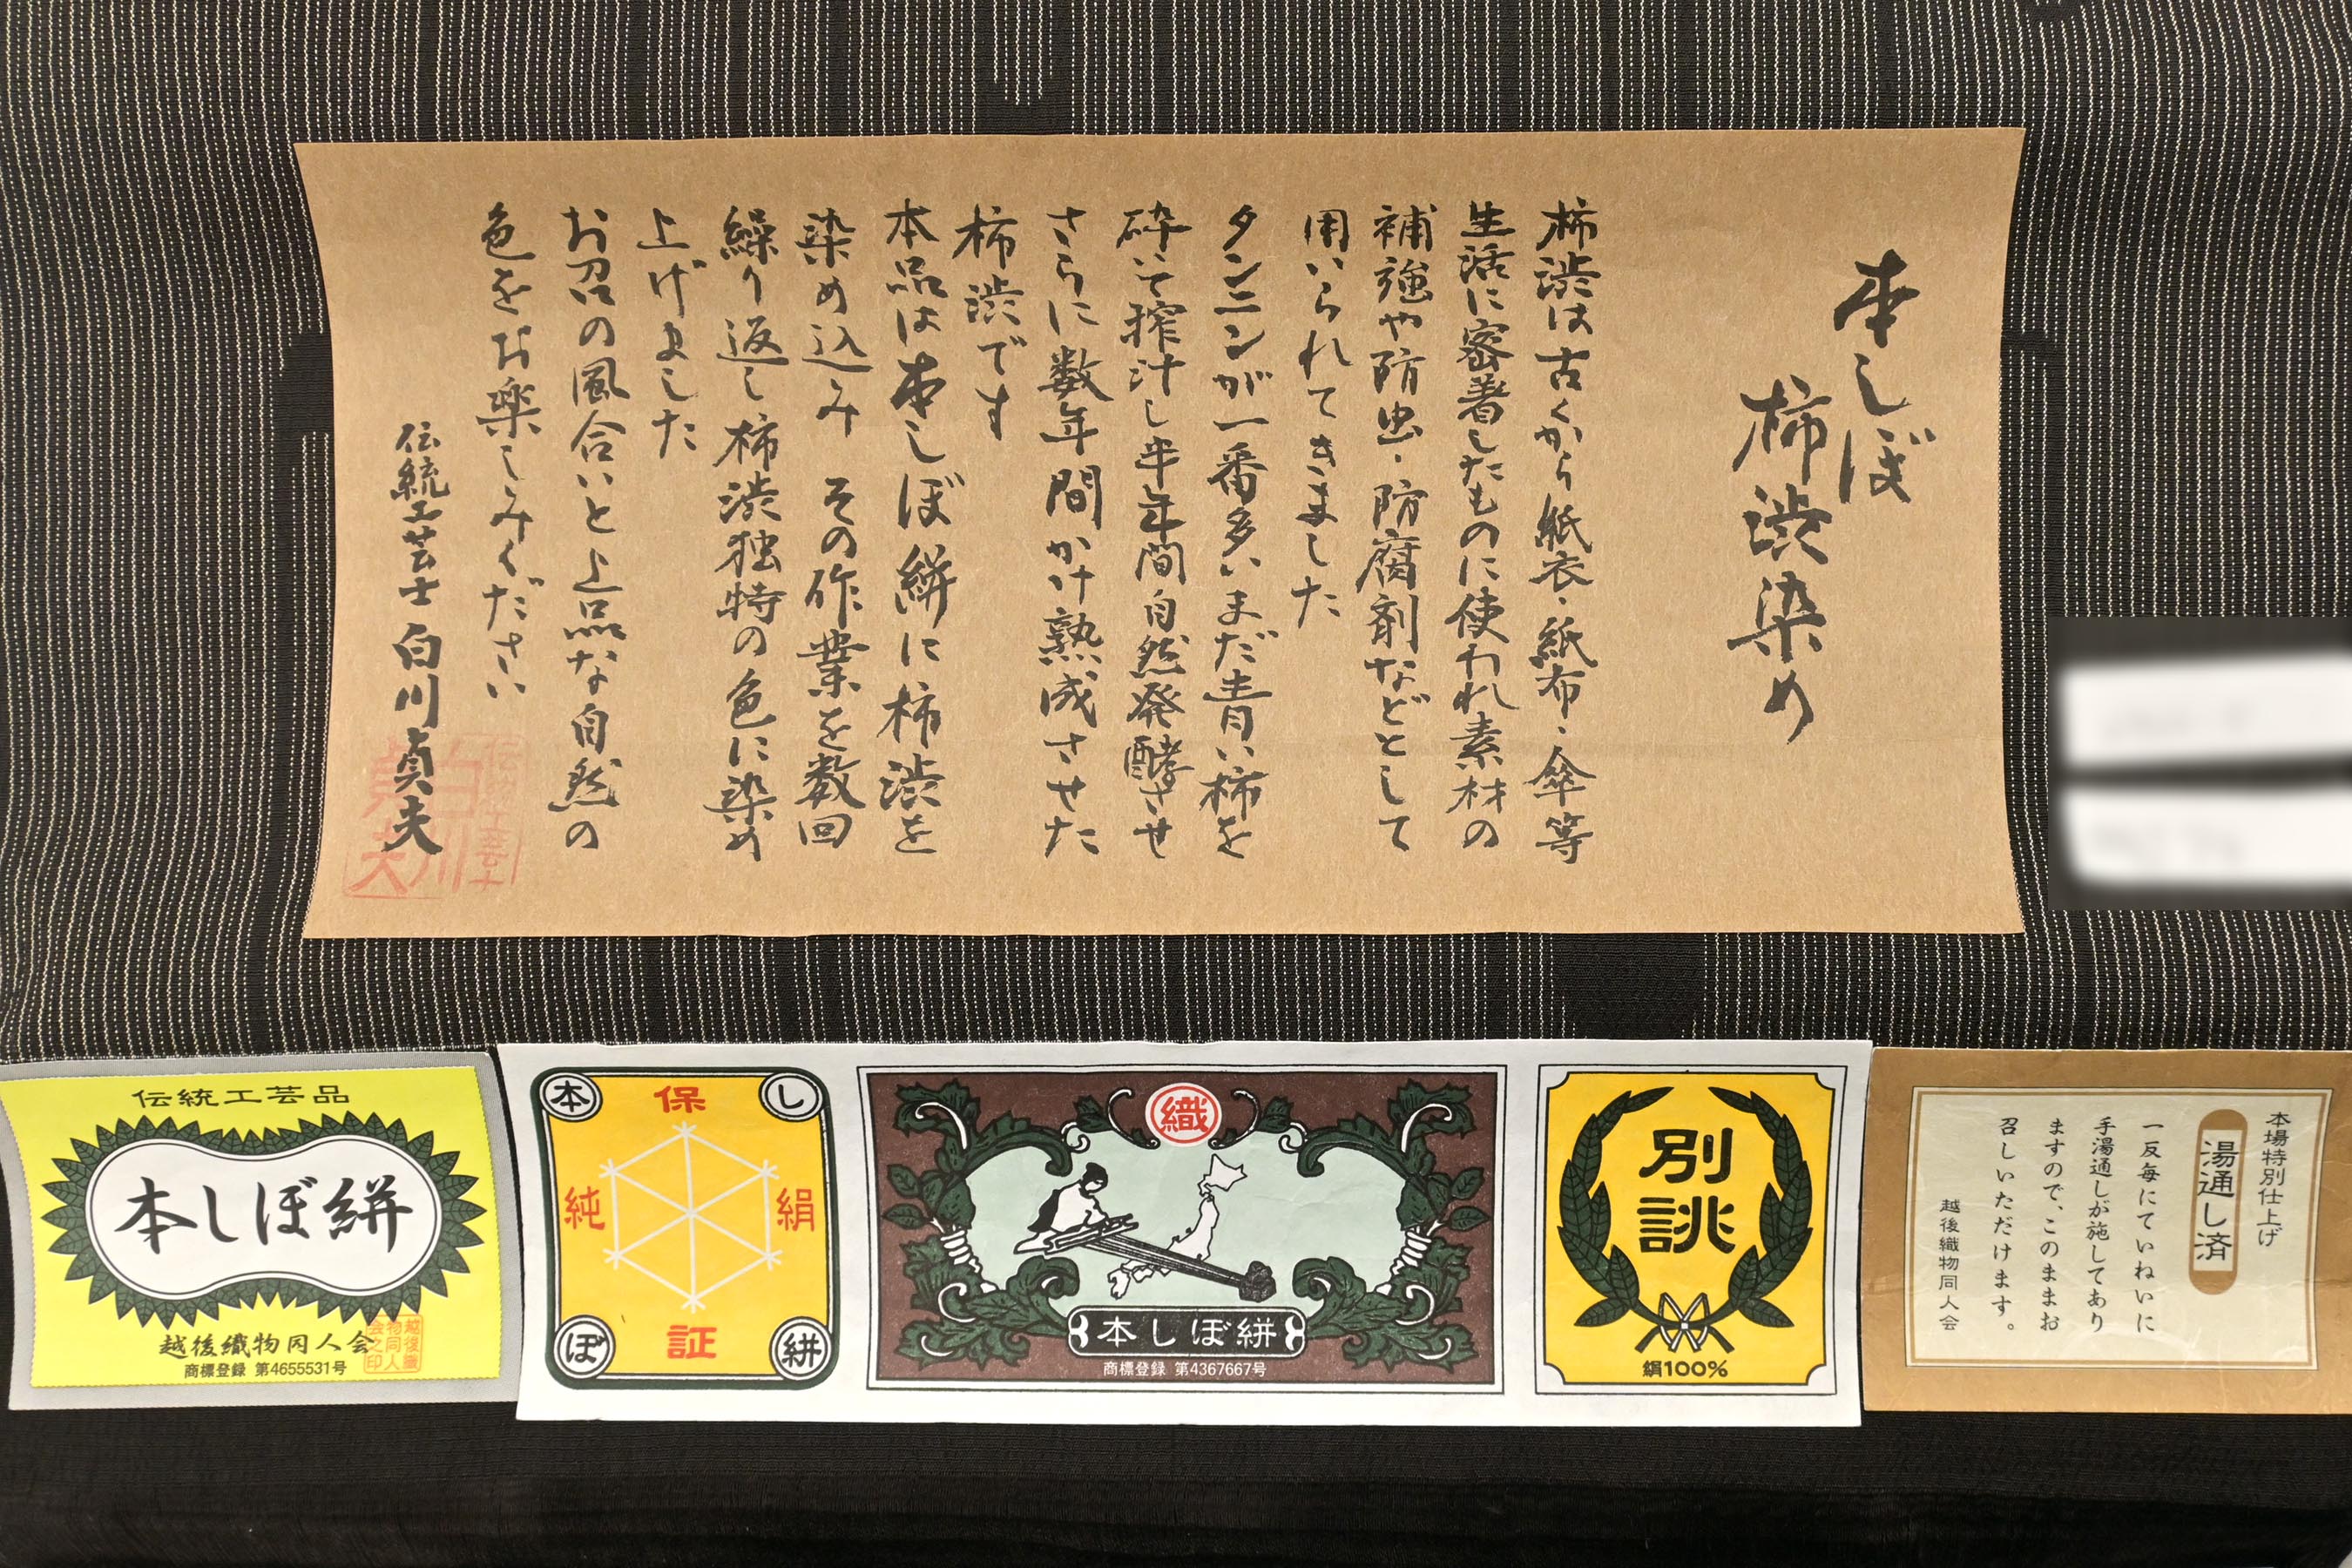 本しぼ
柿渋染め
柿渋は古くから紙衣・紙布・傘等
生活に密着したものに使われ素材の
補強や防虫・防腐剤などとして
用いられてきました
タンニンが一番多いまだ青い柿を
砕いて搾汁し半年間自然発酵させ
さらに数年間かけ熟成させた
柿渋です
本品は本しぼ絣に柿渋を
染め込み その作業を数回
繰り返し柿渋独特の色に染め
上げました
お召の風合いと上品な自然の
色をお楽しみください
伝統工芸士 白川貞夫
伝統工芸士
白川
貞夫
伝統工芸品
本しぼ絣
越後織物同人会
越後織
物同人
会之印
商標登録 第4655531号
本
保
し
純
絹
ぼ
証
絣
織
本しぼ絣
商標登録 第4367667号
別
誂
絹100%
本場特別仕上げ
湯通し済
一反毎にていねいに
手湯通しが施してあり
ますので、このままお
召しいただけます。
越後織物同人会